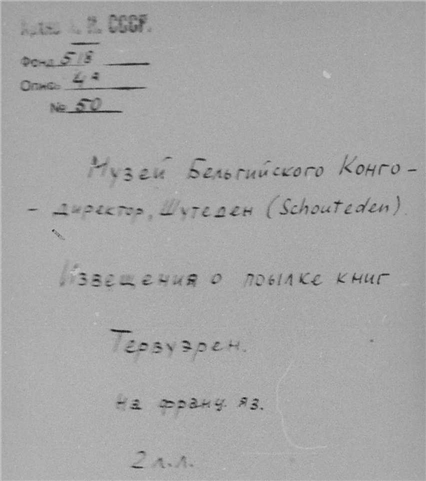 Архив А. Н. СССР.
Фонд 518
Опись 4а
№ 50
Музей Бельгийского Конго -
- директор, Шутеден (Schouteden).
Извещения о поылке книг
Тервуэрен.
на франц. яз.
2 л.л.